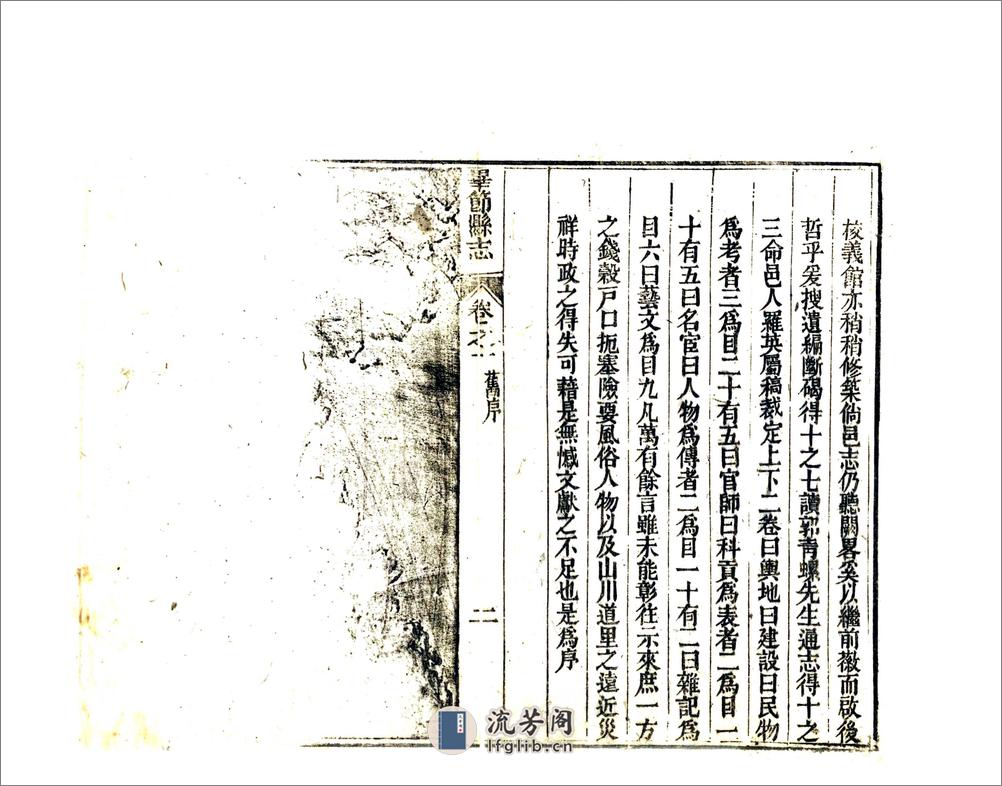 棱義館亦稍稍修築倘邑志仍聽闕畧奚以繼前薇而啟後
哲乎爰搜遺編斷碣得十之七讀郭青螺先生通志得十之
三命邑人羅英屬稿裁定上下二卷曰輿地曰建設曰民物
爲考者三爲目二十有五曰官師曰科貢爲表者二爲目一
十有五曰名宦曰人物爲傳者二爲目一十有二曰雜記爲
目六曰藝文爲目九凡萬有餘言雖未能彰往示來庶一方
之錢穀戸口扼塞險要風俗人物以及山川道里之遠近災
祥時政之得失可藉是無憾文獻之不足也是爲序
畢節縣志
卷之
舊序
二
流芳阁
lfglib.cn